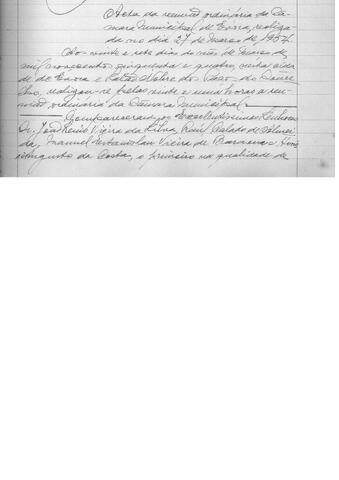 Acta da reunião ordinária da Câ-
mara Municipal de Évora, realiza-
da no dia 27 de Março de 1954.
Aos vinte e sete dias do mês de Março de
mil novecentos cinquenta e quatro, nesta cidade
de Évora e Salão Nobre dos Paços do Conce-
lho, realizou-se pelas vinte e uma horas a reu-
nião ordinária da Câmara Municipal.
Compareceram os Excelentíssimos Senhores
Dr. João Luis Vieira da Silva, Raul de Almei-
da, Manuel Estanislau Vieira de Barahona e
Augusto da Costa, o primeiro na qualidade de